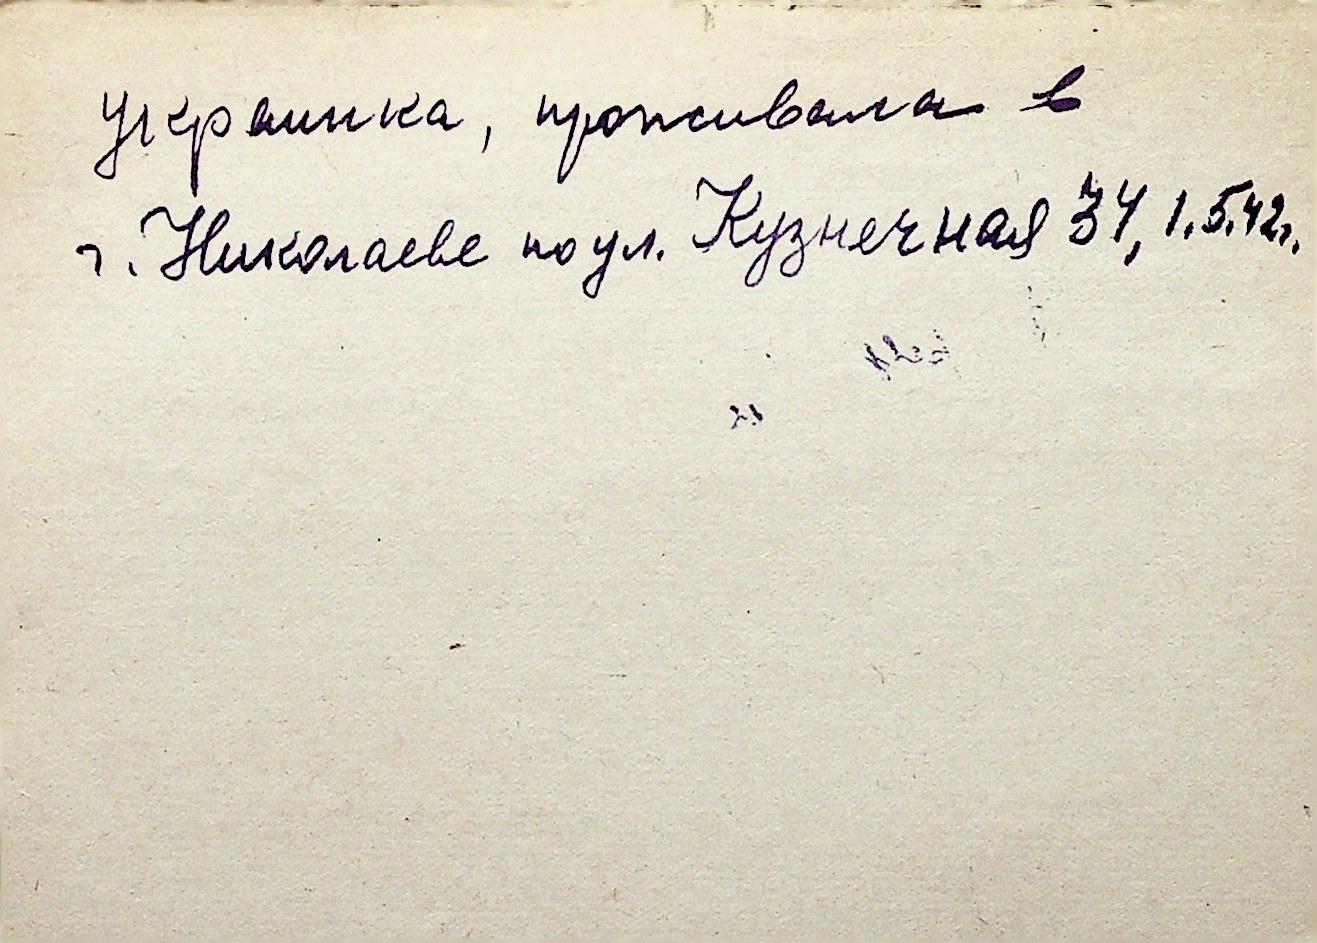 украинка, проживала в
г. Николаеве по ул. Кузнечная 34, 1.5.42г.